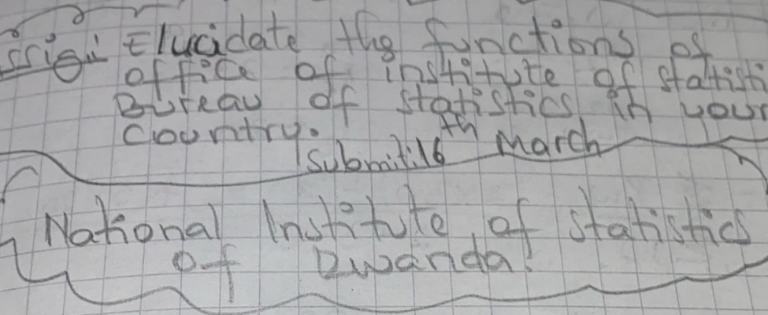 Elucidate the functions of
office of institute of statisti
Bureau of statistics in your
Country.
Submit: 16th March
National Institute of statistics
of Rwanda.